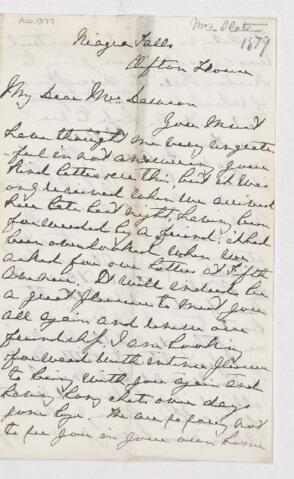 Acc. 1377
Mrs Slater
1879
Niagra Falls
Clifton House
My Dear Mrs Dawson
You Must
have thought me very ungrate
-ful in not answering your
kind letter ere this, but it was
only received when we arrived
here late last night, having been
forwarded by a friend; it had
been overlooked when we
asked for our letters at Fifth
Avenue. It will indeed be
a great pleasure to meet you
all again and renew our
friendship. I am looking
forward with intense pleasure
to being with you again and
having long chats over days
gone bye. We are
to see you in your own home